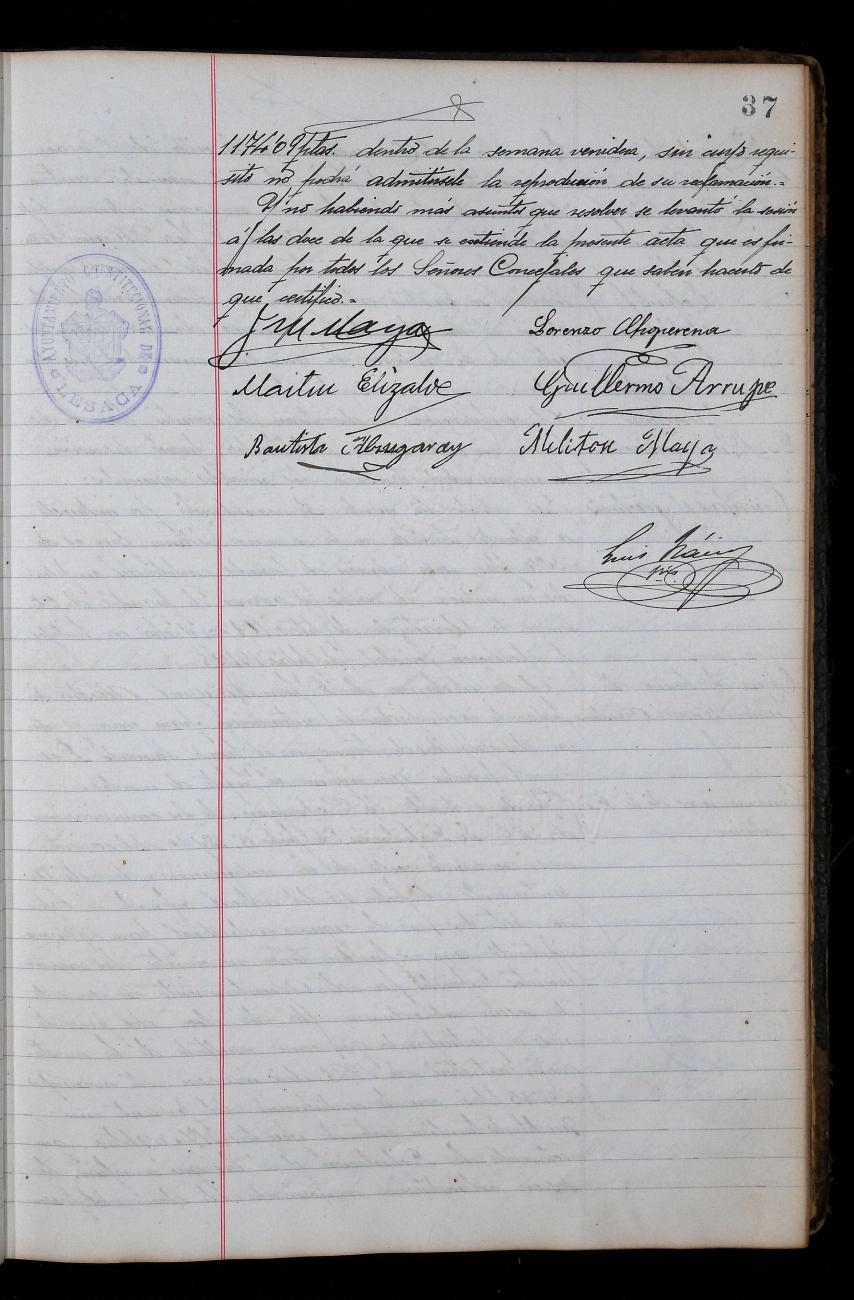 37
1174'09 ptas. dentro de la semana venidera, sin cuyo requi-
sito no podrá admitirsele la reproducción de su reclamación.=
Y no habiendo más asuntos que resolver se levantó la sesión
á las doce de la que se extiende la presente acta que es fir-
mada por todos los Señores Concejales que saben hacerlo de
que certifico.=
AYUNTAMIENTO CONSTITUCIONAL DE
LESACA
J M Maya Lorenzo Choperena
Martin Elizalde Guillermo Arrupe
Bautista Meliton Maya
Luis